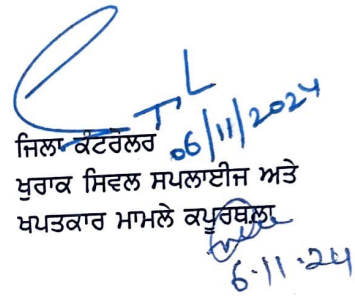 06/11/2024
ਜਿਲਾ ਕੰਟਰੋਲਰ
ਖੁਰਾਕ ਸਿਵਲ ਸਪਲਾਈਜ ਅਤੇ
ਖਪਤਕਾਰ ਮਾਮਲੇ ਕਪੂਰਥਲਾ
6.11.24